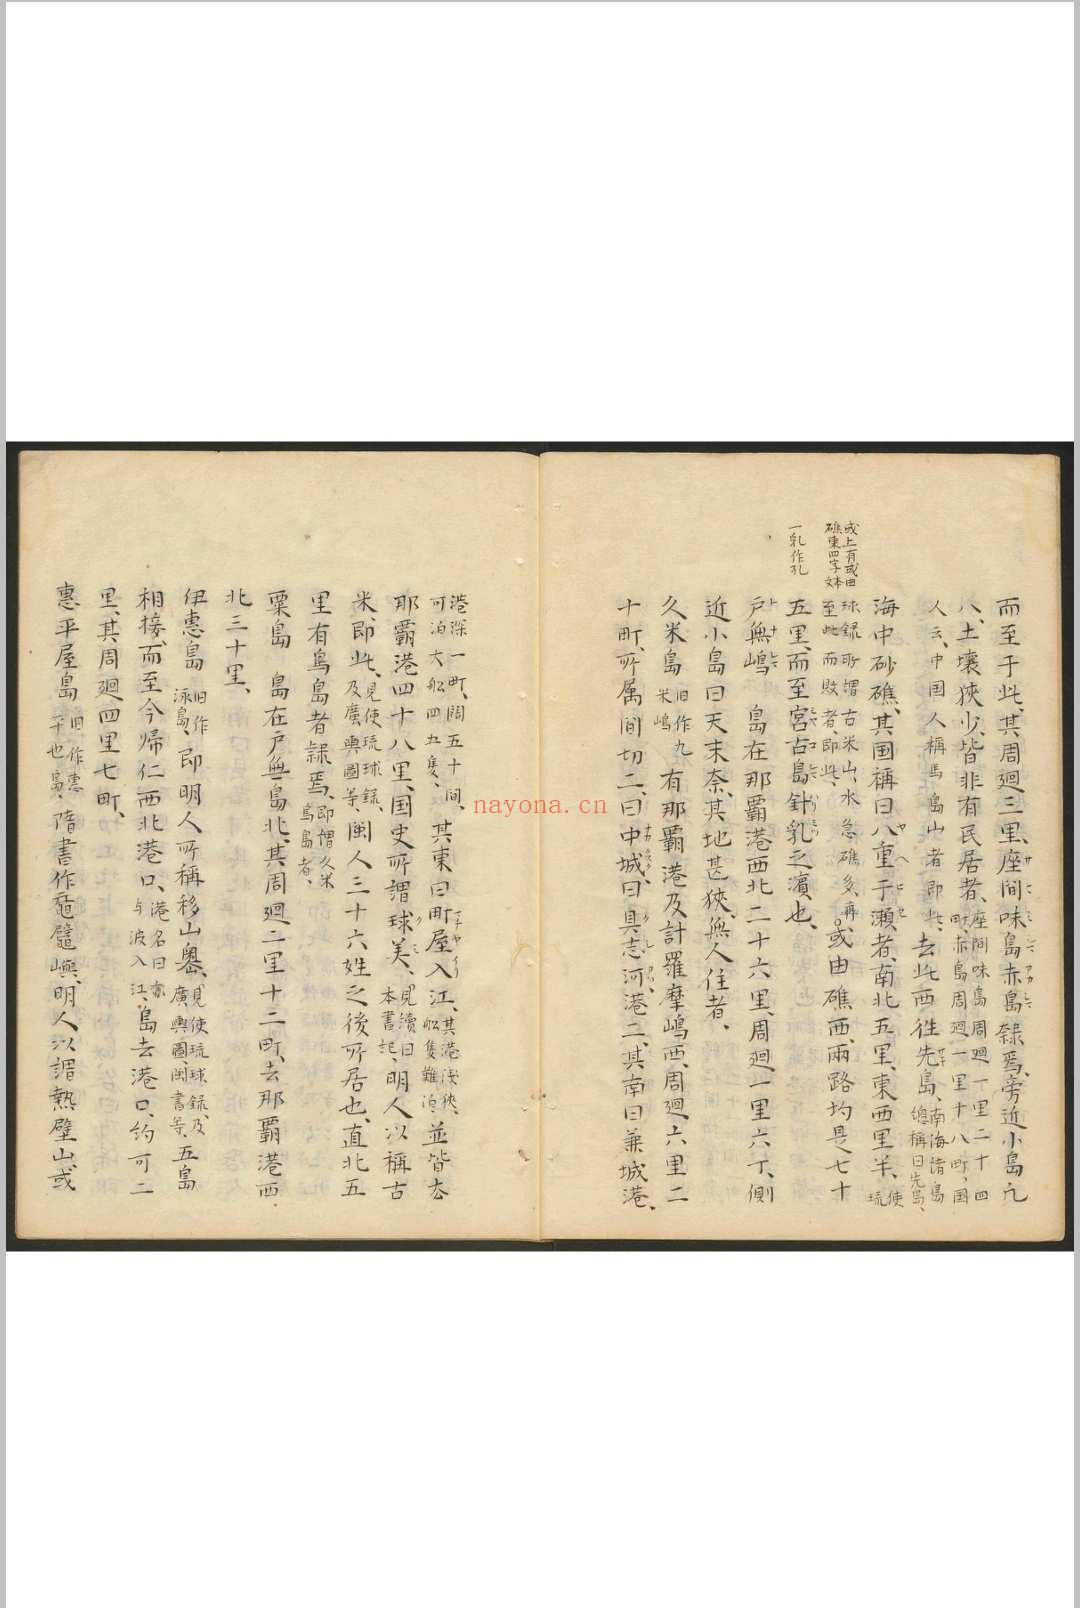 或上有或由
礁東四字一本
一乳作孔
而至于此、其周廻三里、座間味島赤島隸焉、旁近小島凢
八、土壤狹少、皆非有民居者、座間味島周廻一里二十四町、赤島周廻一里十八町、国
人云、中国人稱馬島山者即此、去此西往先島、南海諸島總稱曰先島、
海中砂礁、其国稱曰八重于瀬者、南北五里、東西里半、使琉
球録所謂古米山、水急礁多、再至此而敗者、即此、或由礁西、兩路均是七十
五里、而至宮古島針乳之濱也、
戸無嶋 島在那覇港西北二十六里、周廻一里六丁、側
近小島曰天末奈、其地甚狹、無人住者、
久米島 旧作九米嶋 有那覇港及計羅摩嶋西、周廻六里二
十町、所属間切二、曰中城、曰具志河、港二、其南曰兼城港、
港深一町、闊五十間、可泊大船四五隻、其東曰町屋入江、其港淺狹、船隻難泊、並皆去
那覇港四十八里、国史所謂球美、見續日本書紀、明人以稱古
米、即此、見使琉球録、及廣輿圖等、閩人三十六姓之後所居也、直北五
里有鳥島者隸焉、即謂久米鳥島者、
粟島 島在戸無島北、其周廻二里十二町、去那覇港西
北三十里、
伊惠島 旧作泳島、即明人所稱移山奥、見使琉球録、及廣輿圖、閩書等、五島
相接、而至今帰仁西北港口、港名曰 与波入江、島去港口、約可二
里、其周廻四里七町、
惠平屋島 旧作惠平也島、隋書作𪓟鼊嶼、明人以謂熱壁山、或
nayona.cn